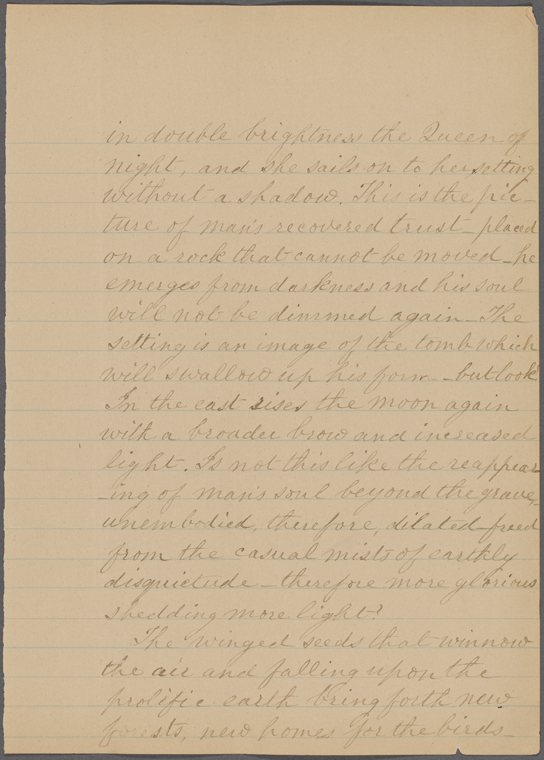 in double brightness the Queen of
night, and she sails on to her setting
without a shadow. This is the pic-
ture of man's recovered trust - placed
on a rock that cannot be moved - he
emerges from darkness and his soul
will not be dimmed again - The
setting is an image of the tomb which
will swallow up his form - but look!
In the east rises the moon again
with a broader brow and increased
light. Is not this like the reappear-
-ing of man's soul beyond the grave,
unembodied, therefore, dilated - freed
from the casual mists of earthly
disquietude - therefore more glorious
shedding more light?
The winged seeds that winnow
the air and falling upon the
prolific earth bring forth new
forests, new homes for the birds -